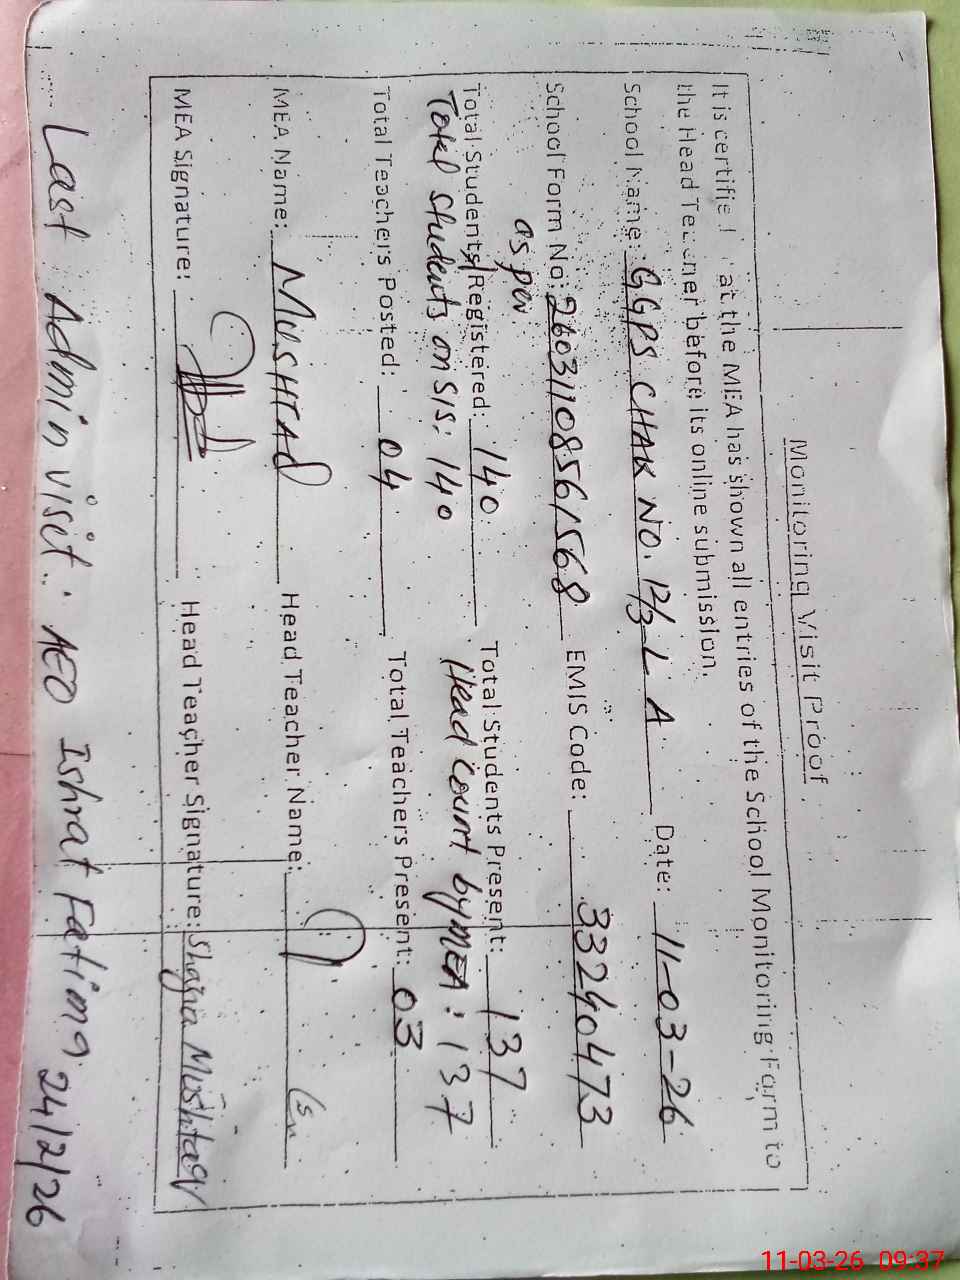 Monitoring Visit Proof
It is certified that the MEA has shown all entries of the School Monitoring Form to
the Head Teacher before its online submission.
School Name: GGPS CHAK NO. 12/3 L A Date: 11-03-26
School Form No: 26031108561568 EMIS Code: 33240473
as per
Total Students Registered: 140 Total Students Present: 137
Total students on SIS: 140 Head count by MEA: 137
Total Teachers Posted: 04 Total Teachers Present: 03
MEA Name: MUSHTAQ Head Teacher Name:
MEA Signature: Head Teacher Signature: Mushtaq
Last Admin visit: AEO Ishrat Fatima 24/2/26
11-03-26 09:37